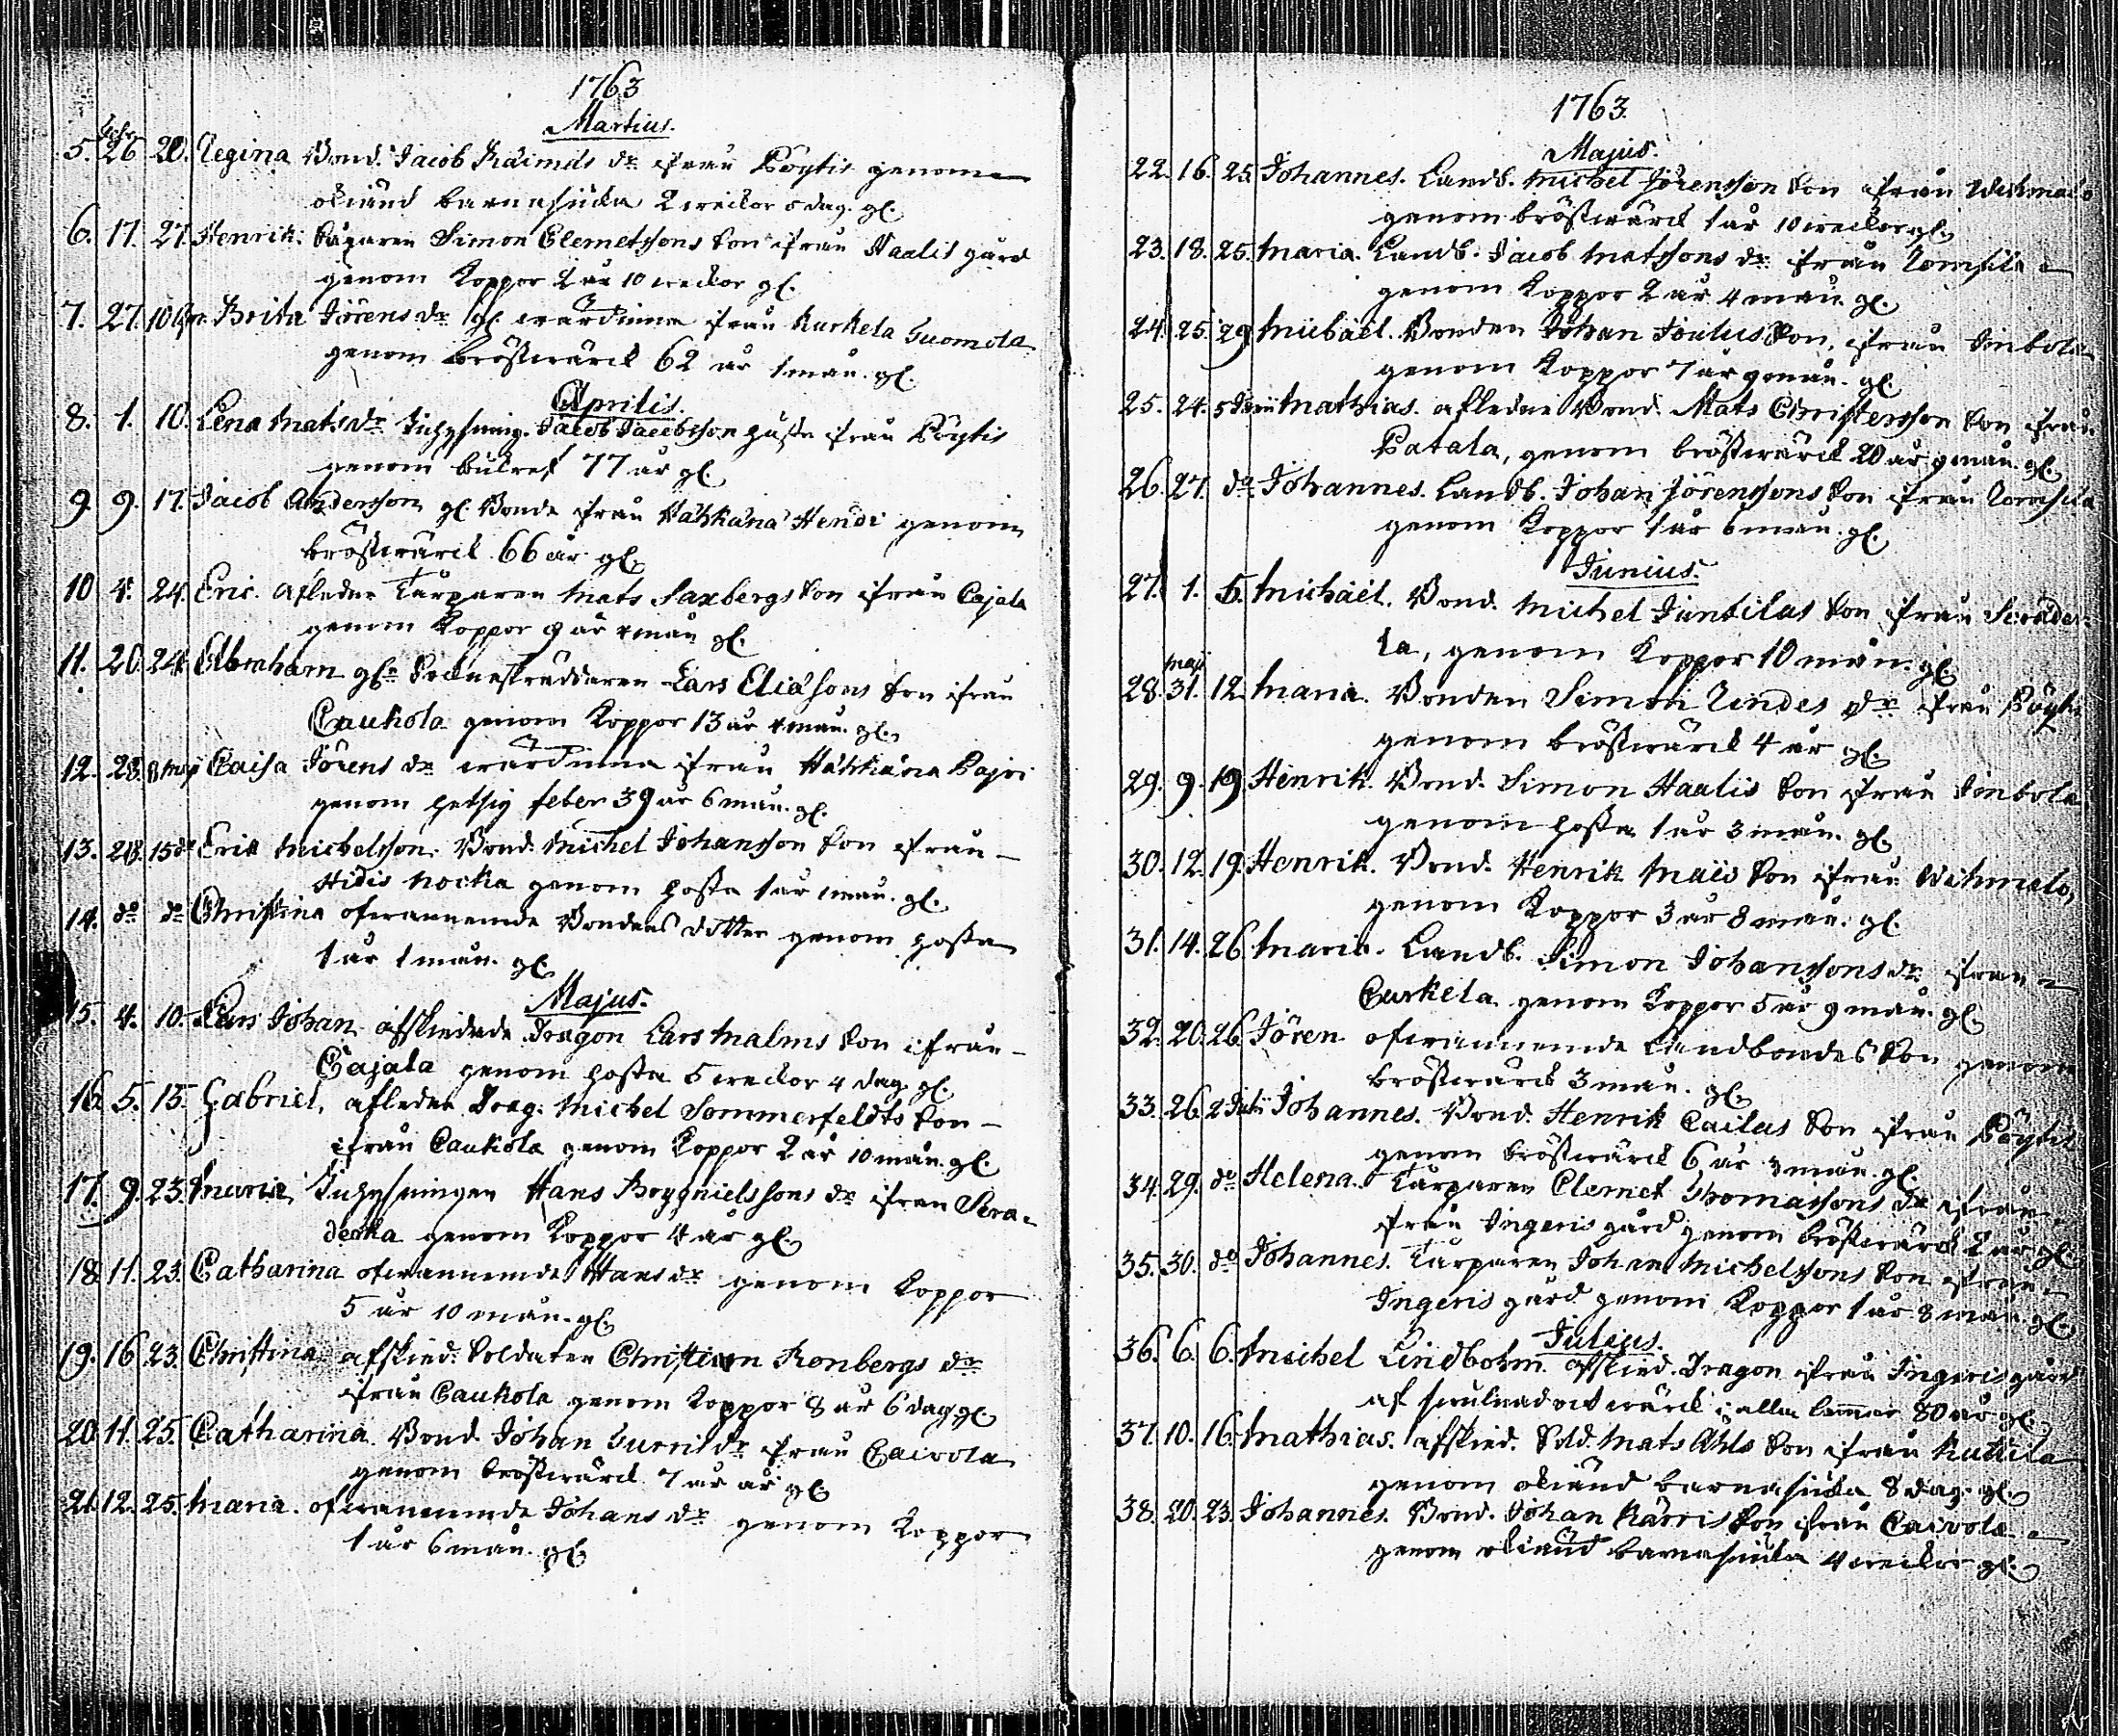 1763
Martius.
Febr.
5. 26 20. Regina Bond. Jacob Raimils dr ifrån Pöytis genom
okiänd barnasiuka 2 weckor dag. gl.
6. 17. 27. Henrik. Simon Clemetssons Son ifrån Haalis gård
genom Koppor 2 år 10 weckor gl.
7. 27. 10 Apr. Brita Jörens dr gl. wärdinna ifrån Kurkela Tuomola
genom bröstwärck 62 år 1 mån. gl.
Aprilis.
8. 1. 10. Lena Mats dr Jacob Jacobsson hustru ifrån Pöytis
genom bukref 77 år gl.
9. 9. 17. Jacob Andersson gl. Bonde ifrån Hahkana Hendi genom
bröstwärck 66 år gl.
10 4. 24. Eric. Afledne Torparen Mats Saxbergs Son ifrån Cajala
genom Koppor 9 år 4 mån gl.
11. 20. 24. Abraham gl. Sockneskräddaren Lars Eliæsons Son ifrån
Caukola genom Koppor 13 år 4 mån. gl.
12. 28. 8 maj Caisa Jörens dr wärdinna ifrån Hahkana Pajri
genom hetsig feber 39 år 6 mån. gl.
13. 28. 15 do Erik Michelsson. Bond. Michel Johansson Son ifrån
Hidis Nocka genom hosta 1 år 1 mån. gl.
14. do do Christina ofwannemde Bondens dotter genom hosta
1 år 1 mån. gl.
Majus.
15. 4. 10. Lars Johan afskiedade Dragon Lars Malms Son ifrån
Cajala genom hosta 5 weckor 4 dag. gl.
16. 5. 15. Gabriel. afledne Drag. Michel Sommerfeldts Son
ifrån Caukola genom Koppor 2 år 10 mån. gl.
17. 9. 23. Maria Inhysningen Hans Brygnielssons dr ifrån Skra-
derka genom Koppor 4 år gl.
18 11. 23. Catharina ofwannemde Hans dr genom Koppor
5 år 10 mån. gl.
19. 16 23. Christina afskied. Soldaten Christian Ronbergs dr
ifrån Caukola genom Koppor 8 år 6 dag. gl.
20. 11. 25. Catharina. Bond Johan Turris dr ifrån Caivola
genom bröstwärck 7 år gl.
21. 12. 25. Maria. ofwannemde Johans dr genom Koppor
1 år 6 mån. gl.
1763.
Majus.
22. 16. 25. Johannes. Landb. Michel Jörensson Son ifrån Wehmalo
genom bröstwärck 1 år 10 weckor gl.
23. 18. 25. Maria. Landb. Jacob Matssons dr ifrån Romsila
genom Koppor 2 år 4 mån. gl.
24. 25. 29 Michaël. Bonden Johan Joulus Son, ifrån Imbola
genom Koppor 7 år 9 mån. gl.
25. 24. 5 Junii Mathias. afledne Bond. Mats Christersson Son ifrån
Patala, genom bröstwärck 20 år 9 mån. gl.
26. 27. do Johannes. Landb. Johan Jörenssons Son ifrån Romsila
genom Koppor 1 år 6 mån. gl.
Junius.
27. 1. 5. Michaël. Bond. Michel Juntilas Son ifrån Skräder-
la, genom Koppor 10 mån. gl.
maji
28. 31. 12. Maria. Bonden Simon Rindes dr ifrån Pöytis
genom bröstwärck 4 år gl.
29. 9. 19 Henrik. Bond. Simon Haalis Son ifrån Imbola
genom hosta 1 år 3 mån. gl.
30. 12. 19. Henrik. Bond. Henrik Maiis Son ifrån Wehmalo,
genom Koppor 3 år 8 mån. gl.
31. 14. 26. Maria. Landb. Simon Johanssons dr ifrån
Curkela genom Koppor 5 år 9 mån. gl.
32. 20. 26. Jören ofwannemde Landbondes Son genom
bröstwärck 3 mån. gl.
33. 26. 2 Julii Johannes. Bond. Henrik Cailas Son ifrån Pöytis
genom bröstwärck 6 år 3 mån. gl.
34. 29. do Helena. Torparen Clemet Thomassons dr ifrån
ifrån Ingeris gård genom bröstwärck 2 år gl.
35. 30. do Johannes. Torparen Johan Michelssons Son ifrån
Ingeris gård genom Koppor 1 år 8 mån. gl.
Julius.
36. 6. 6. Michel Lindbohm. afskied. Dragon ifrån Ingeris gård
af swulnad och wärck i alla lemmar 80 år gl.
37. 10. 16. Mathias. afskied. Sold. Mats Ahls Son ifrån Kuttila
genom okiänd barnasiuka 8 dag. gl.
38. 20. 23. Johannes. Bond. Johan Karris Son ifrån Caivola
genom okiänd barnasiuka 4 weckor gl.